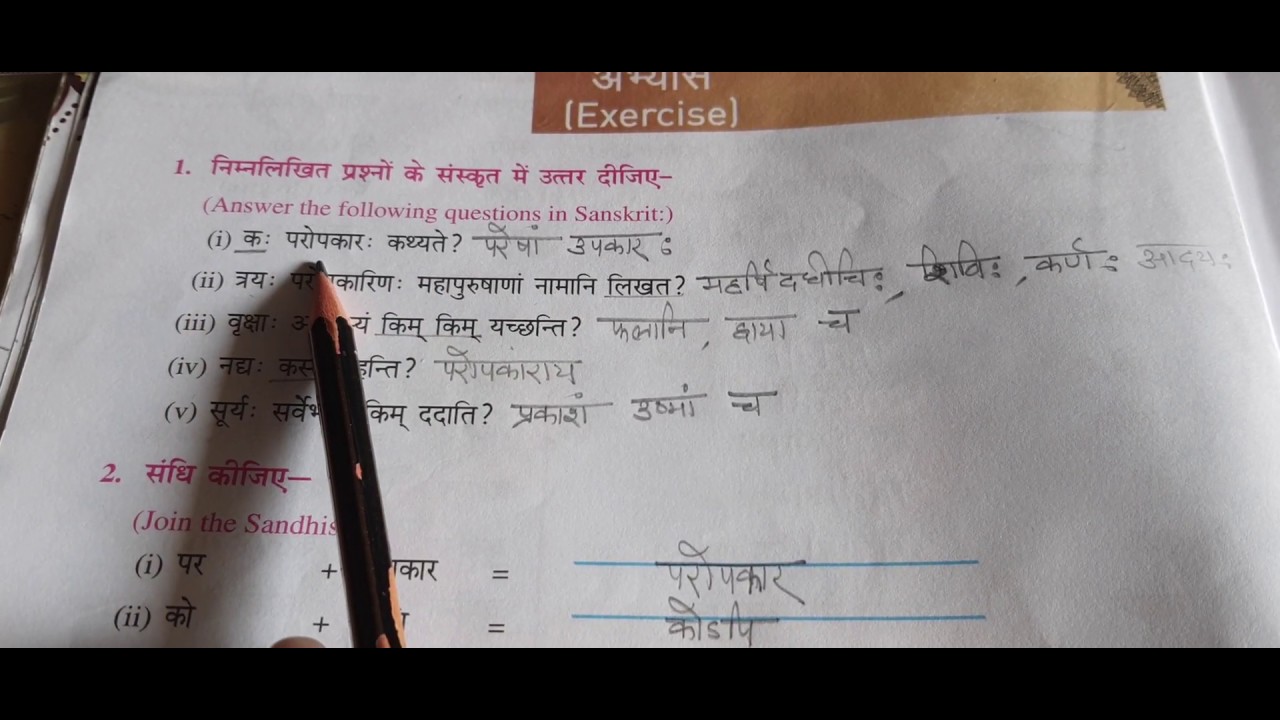 अभ्यास
(Exercise)
1. निम्नलिखित प्रश्नों के संस्कृत में उत्तर दीजिए–
(Answer the following questions in Sanskrit:)
(i) कः परोपकारः कथ्यते? परेषां उपकारः
(ii) त्रयः महापुरुषाणां नामानि लिखत? महर्षि दधीचिः, शिविः, कर्णः आदयः
(iii) वृक्षाः किम् किम् यच्छन्ति? फलानि, छाया च
(iv) नद्यः परोपकाराय
(v) सूर्यः किम् ददाति? प्रकाशं उष्मां च
2. संधि कीजिए–
(Join the Sandhis
(i) पर + = परोपकार
(ii) को + = कोऽपि